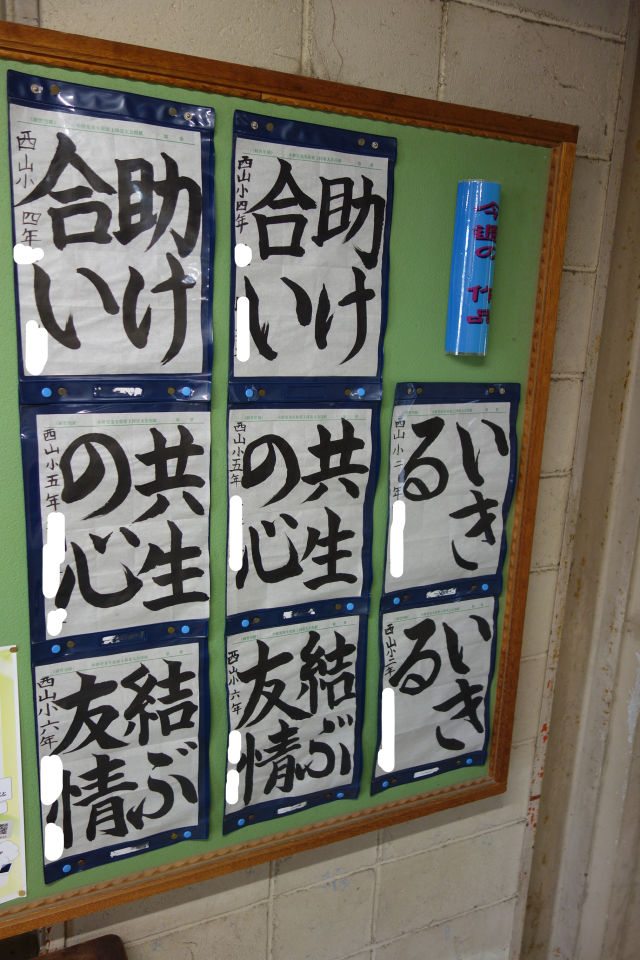 今週の作品
助け
合い
西山小四年
助け
合い
西山小四年
いき
る
西山小二年
共生
の心
西山小五年
共生
の心
西山小五年
いき
る
西山小二年
結ぶ
友情
西山小六年
結ぶ
友情
西山小六年